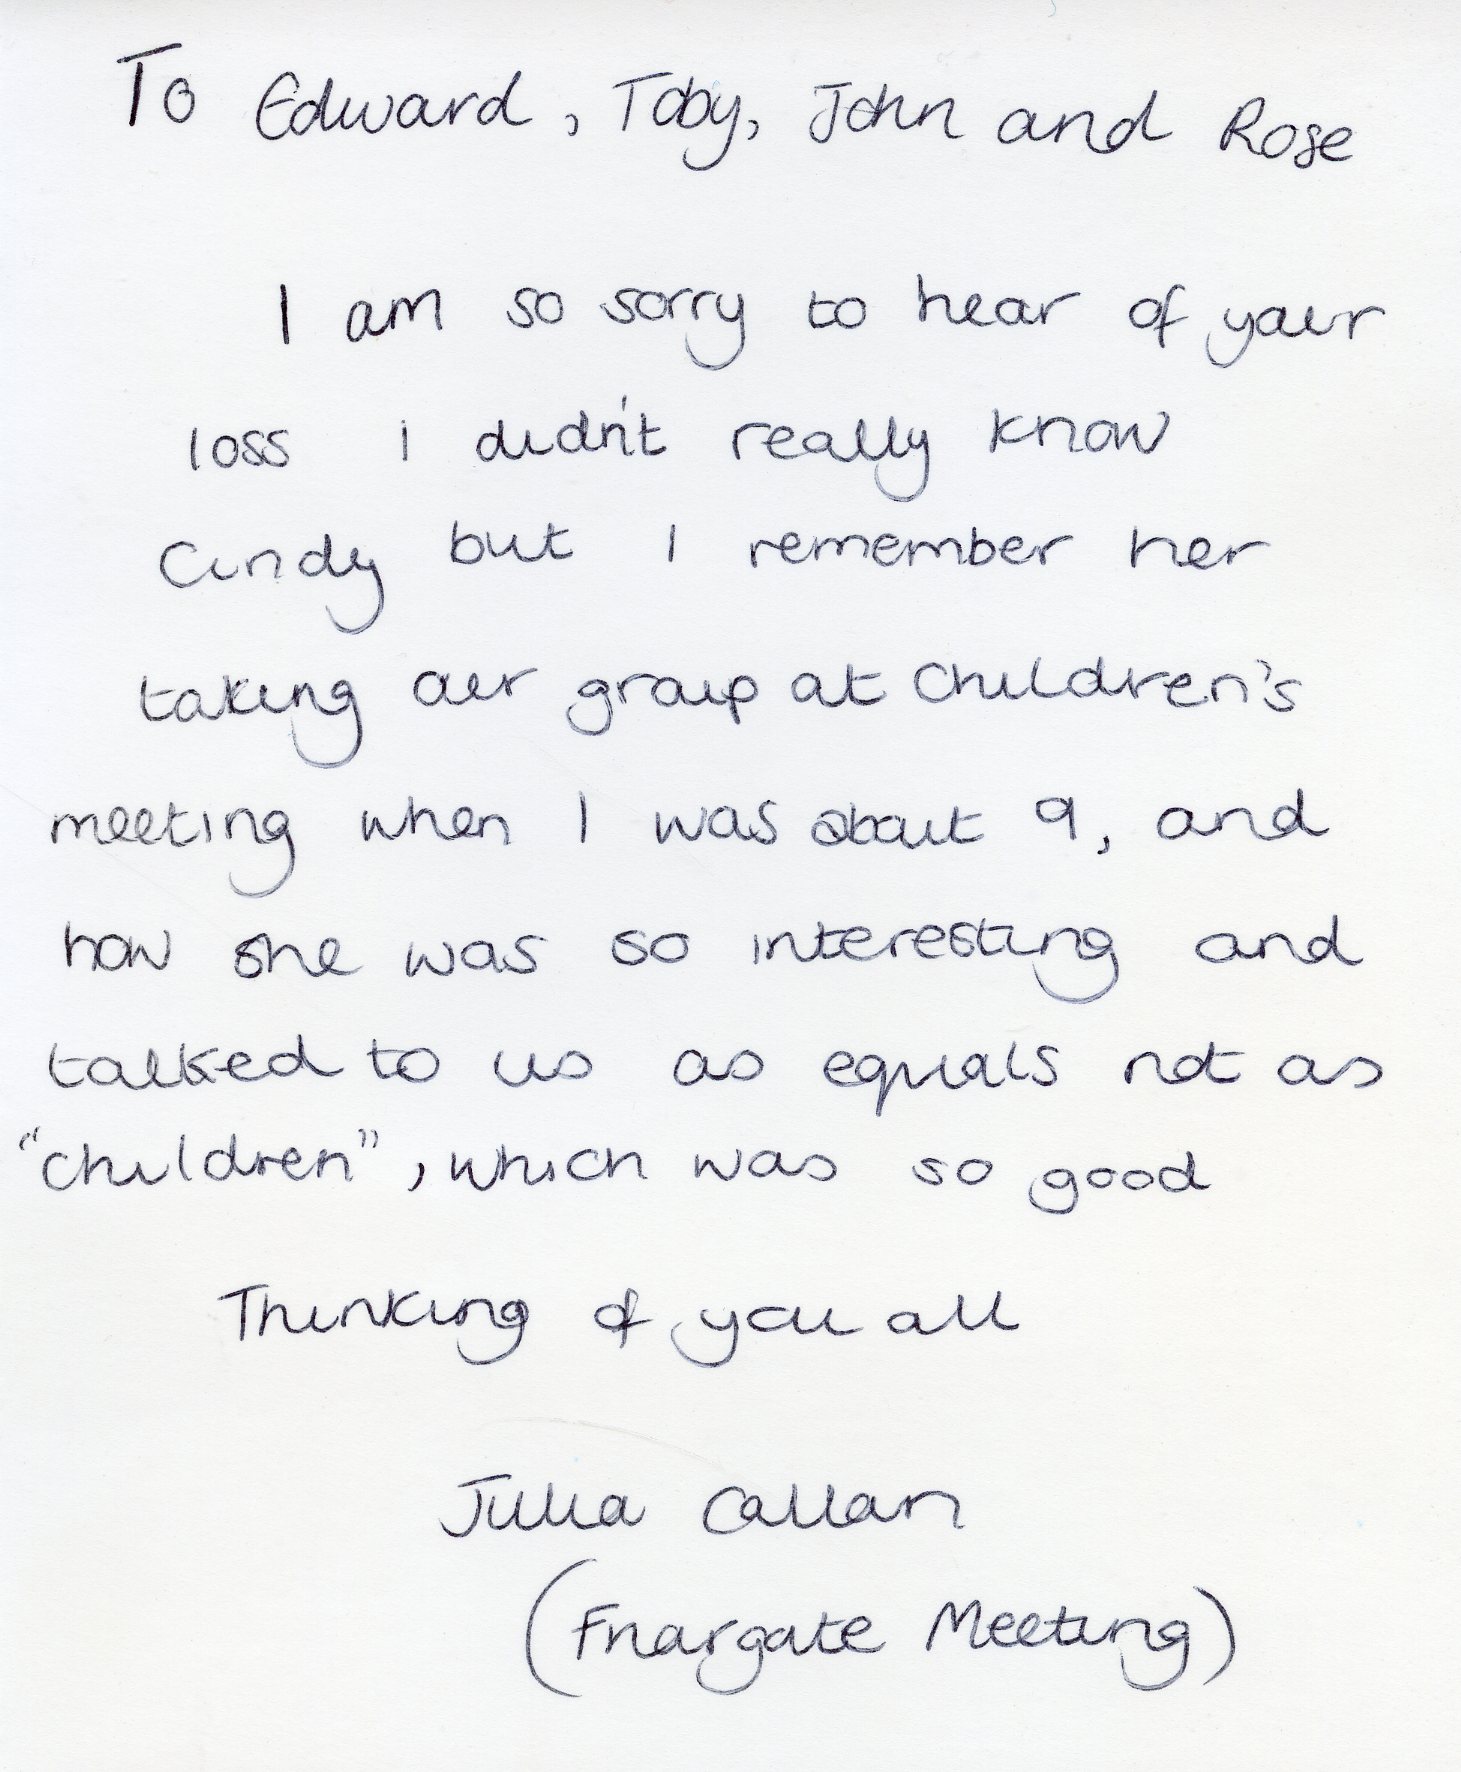 To Edward, Toby, John and Rose
I am so sorry to hear of your
loss I didn't really know
Cindy but I remember her
taking our group at Children's
meeting when I was about 9, and
how she was so interesting and
talked to us as equals not as
"children", which was so good
Thinking of you all
Julia Callan
(Friargate Meeting)